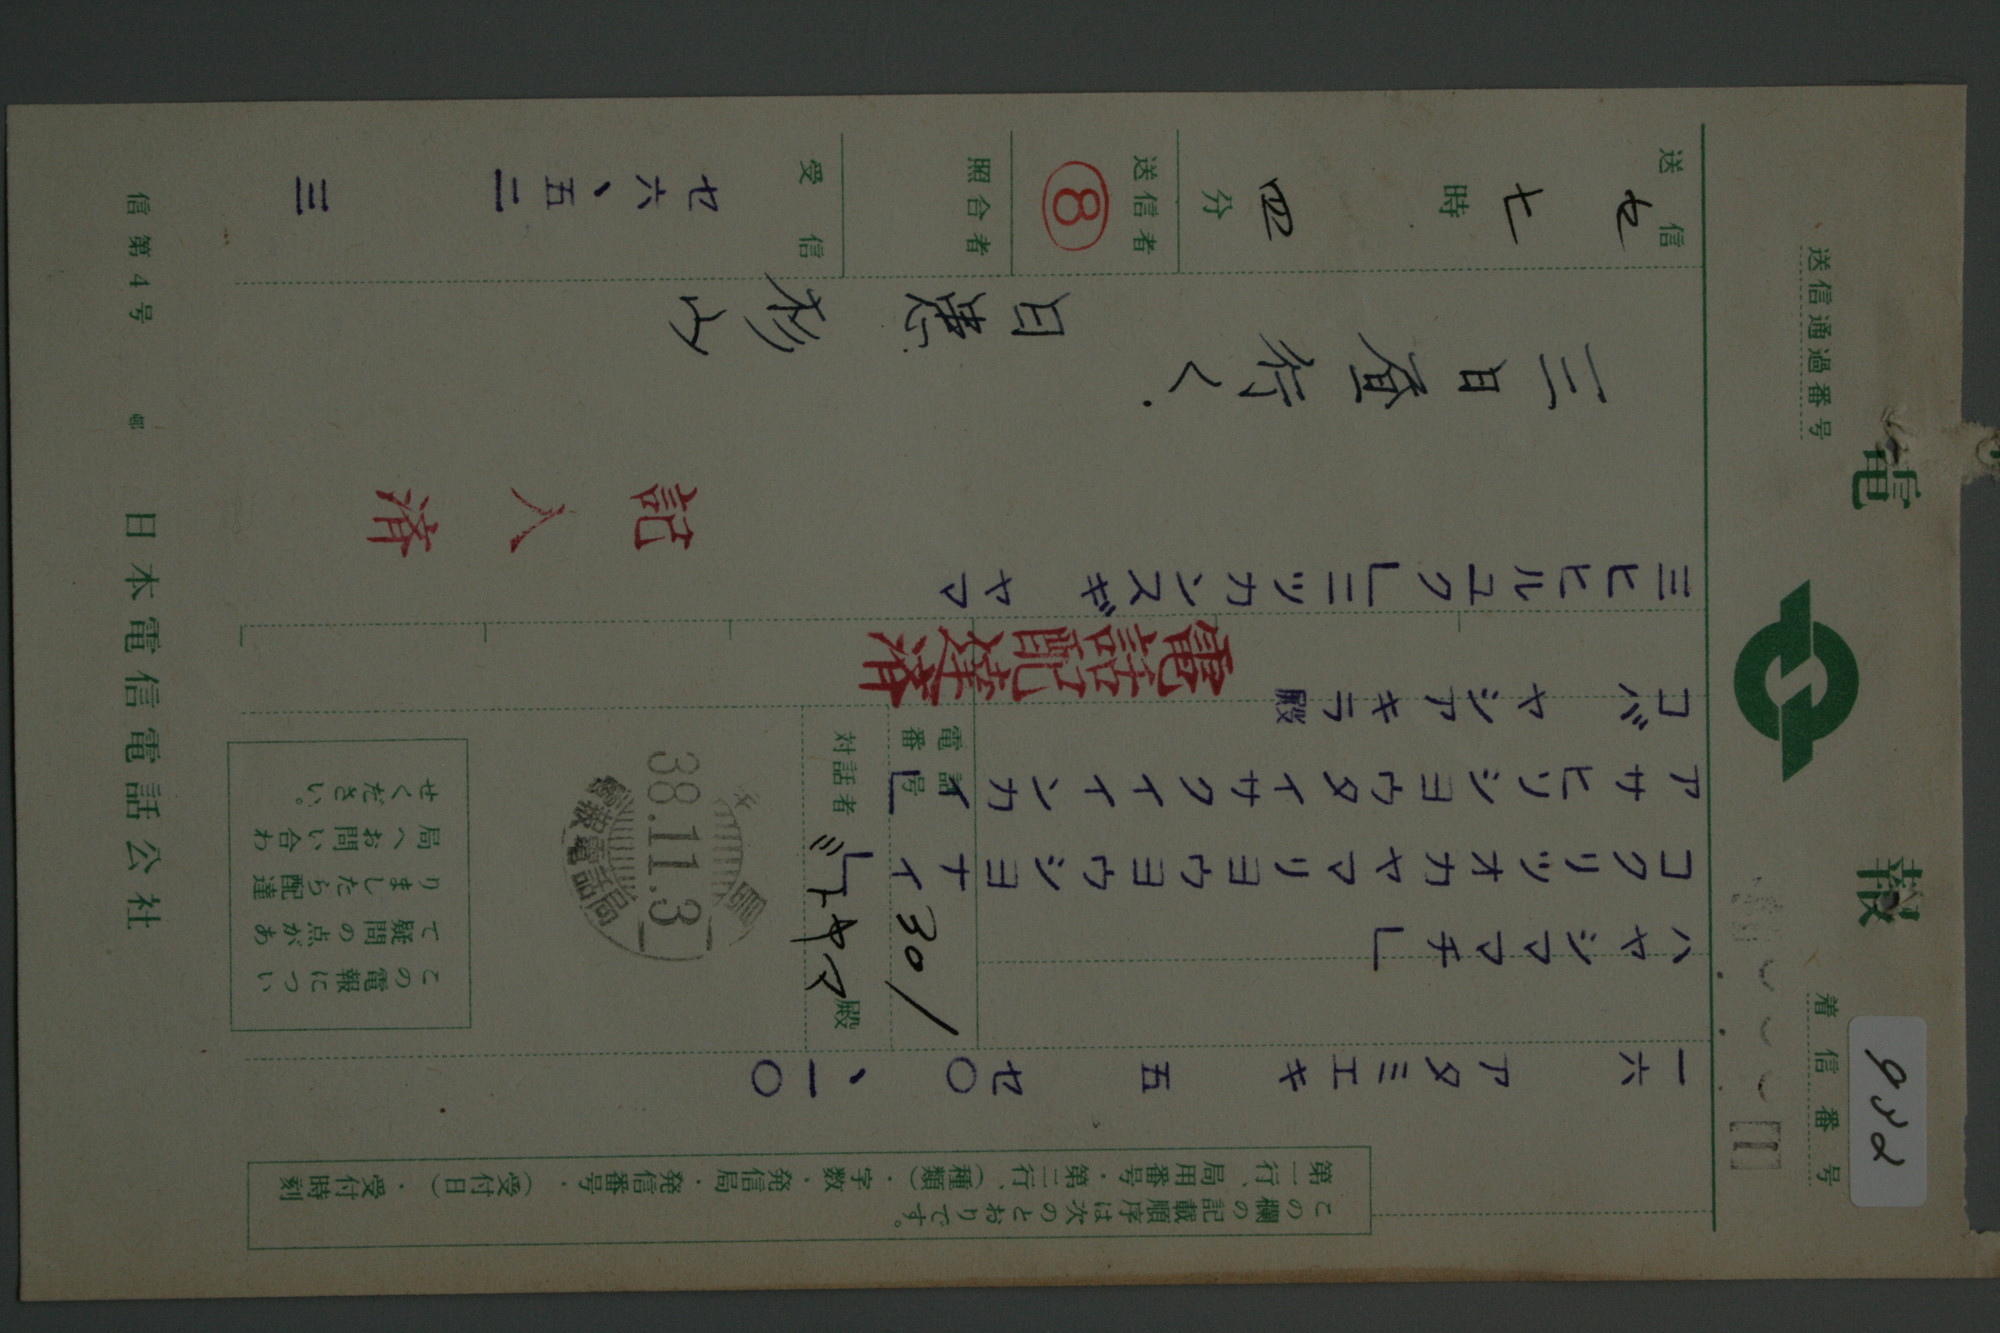 電報
送信通過番号
着信番号
982
この欄の記載順序は次のとおりです。
第一行、局用番号・第二行、(種類)・字数・発信局・発信番号・(受付日)・受付時刻
一六 アタミエキ 五 セ〇、一〇
ハヤシマチ」
コクリツオカヤマリヨウヨウシヨナイ」
アサヒソシヨウタイサクイインカイ」
コバヤシアキラ殿
電話番号 301
対話者 殿
38.11.3
この電報につい
て疑問の点があ
りましたら配達
局へお問い合わ
せください。
電話配達済
ミヒヒルユク」ニツカンスギヤマ
記入済
三日昼行く.
日患 杉山
送信 セ 七時 四分
送信者 8
照合者
受信 セ六、五二
三
信第4号
日本電信電話公社